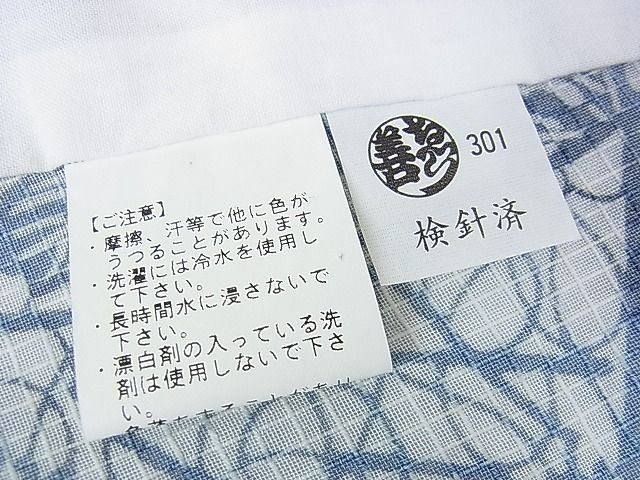 【ご注意】
・摩擦、汗等で他に色が
うつることがあります。
・洗濯には冷水を使用し
て下さい。
・長時間水に浸さないで
下さい。
・漂白剤の入っている洗
剤は使用しないで下さ
い。
301
検針済